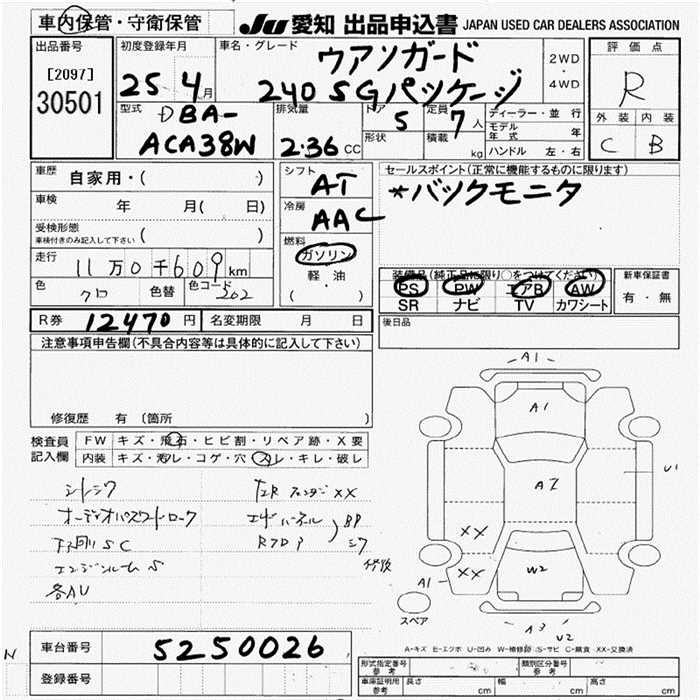 車内保管・守衛保管
JU 愛知 出品申込書 JAPAN USED CAR DEALERS ASSOCIATION
出品番号
[2097]
30501
初度登録年月
25 4月
車名・グレード
ヴァンガード
240 SGパッケージ
2WD
・
4WD
評価点
R
外装 内装
C B
型式
DBA-
ACA38W
排気量
2.36 CC
ドア
5
形状
定員
7人
積載
kg
ディーラー・並行
モデル年式 年
ハンドル 左・右
車歴 自家用・( ・)
車検 年 月( 日)
受検形態
車検付きのみ記入して下さい ( )
走行 11万0千609km
色 クロ 色替 色コード 202
シフト
AT
冷房
AAC
燃料
ガソリン
軽・油
( ・ )
セールスポイント(正常に機能するものに限ります)
*バックモニタ
装備品(純正品に限り○をつけてください)
PS PW エアB AW
SR ナビ TV カワシート
新車保証書
有・無
R券 12470円 名変期限 月 日
後日品
注意事項申告欄(不具合内容等は具体的に記入して下さい)
修復歴 有 〔箇所 〕
検査員
記入欄
FW キズ・飛石・ヒビ割・リペア跡・X要
内装 キズ・汚レ・コゲ・穴・スレ・キレ・破レ
オーディオパスワードロック
下回りSC
エンジンルームS
各AU
XX
BP
修復
A1
A1
A2
U1
XX
XX
A1
W2
A3
U2
スペア
A-キズ E-エクボ U-凹み W-補修跡 S-サビ C-腐食 XX-交換済
N
車台番号 5250026
登録番号
形式指定番号
参考
類別区分番号
参考
車庫証明用
参考
長さ cm 幅 cm 高さ cm